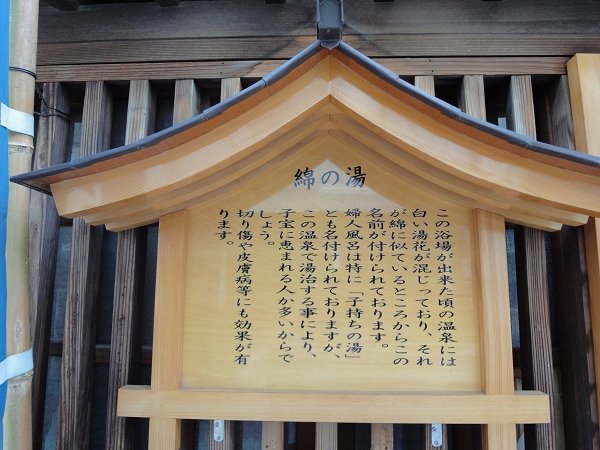 綿の湯
この浴場が出来た頃の温泉には
白い湯花が混じっており、それ
が綿に似ているところからこの
名前が付けられております。
婦人風呂は特に「子持ちの湯」
とも名付けられておりますが、
この温泉で湯治する事により、
子宝に恵まれる人が多いからで
しょう。
切り傷や皮膚病等にも効果が有
ります。